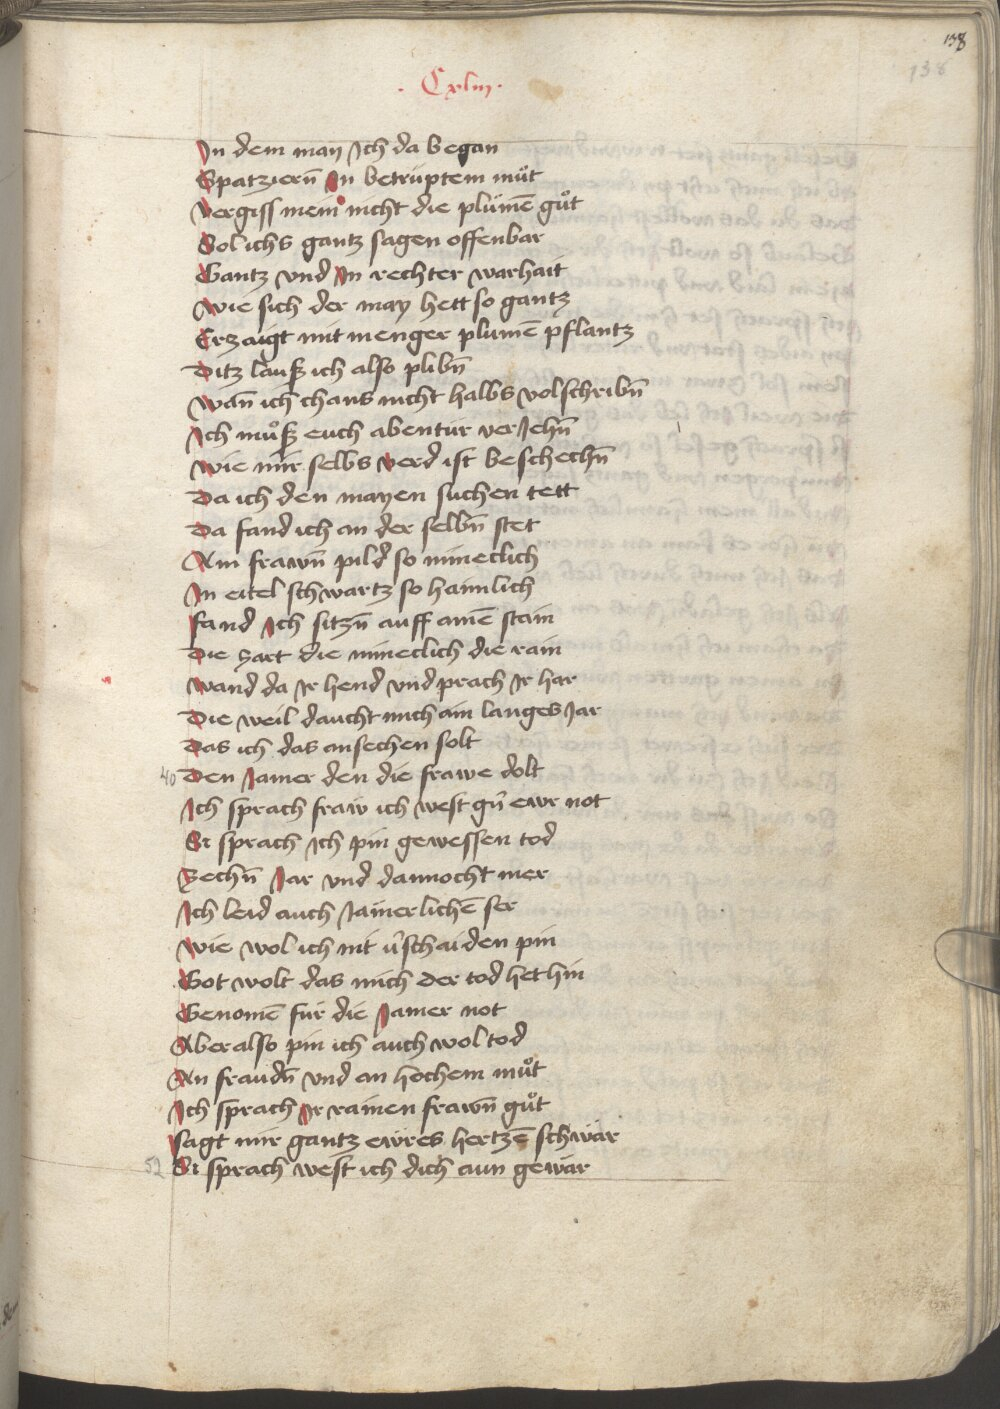 138
138
· Cxliij ·
In dem may Ich da began
Spatziern̄ In betrüptem můt
Vergiss mein nicht die plümē gůt
Sol ichs gantz sagen offenbar
Gantz vnd In rechter warhait
Wie sich der may hett so gantz
Erzaigt mit menger plumē pflantz
Ditz lauß ich also plibn̄
Wan̄ ich chans nicht halbs volschribn̄
Ich můß euch abentur verJehn̄
Wie mir selbs verd ist beschechn̄
Da ich den mayen suchen tett
Da fand ich an der selbn̄ stet
Ain frawn̄ pild so mineclich
In eitel schwartz so haimlich
Fand Ich sitzn̄ auff ainē stain
Die zart die mineclich die rain
Wand da Ir hend vnd prach Ir har
Die weil daucht mich ain langes Jar
Das ich das ansechen solt
40 Den Jamer den die frawe dolt
Ich sprach fraw ich west gn̄ ewr not
Si sprach Ich pin gewessen tod
Zechn̄ Jar vnd dannocht mer
Ich leid auch Jamerlichē ser
Wie wol ich nit v̄schaiden pin
Got wolt das mich der tod het hin
Genomē für die Jamer not
Aber also pin ich auch wol tod
An fraudn̄ vnd an hochem můt
Ich sprach Ir rainen frawn̄ gůt
Sagt mir gantz ewres hertzē schwär
52 Si sprach west ich dich aun gewär